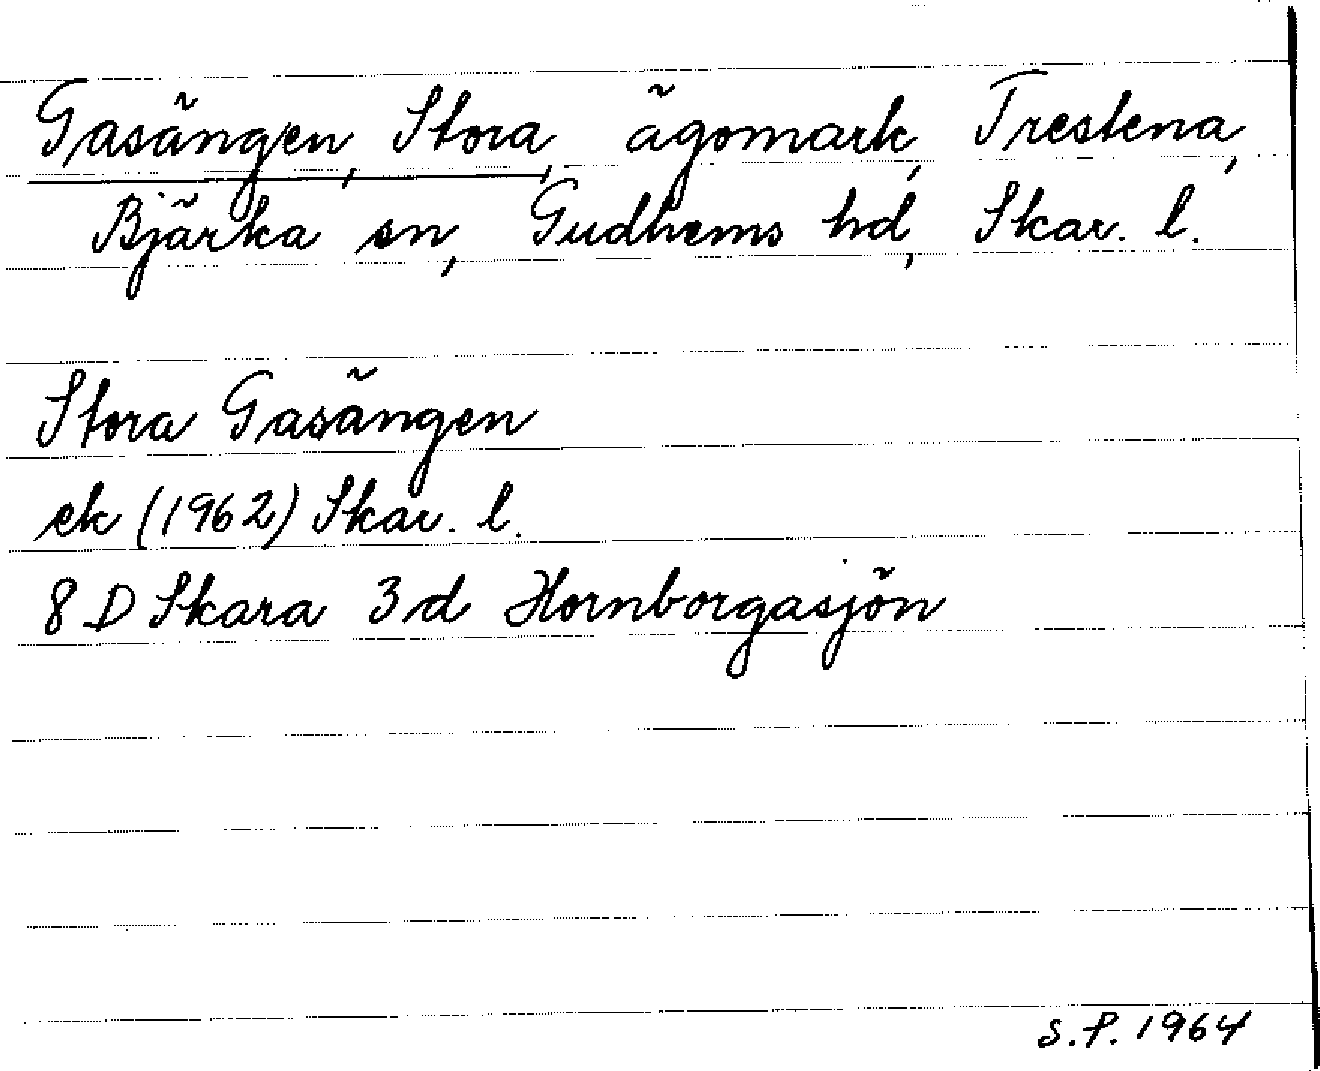 Gasängen, Stora, ägomark, Trestena,
Bjärka sn, Gudhems hd, Skar. l.
Stora Gasängen
ek (1962) Skar. l.
8 D Skara 3d Hornborgasjön
S.P. 1964